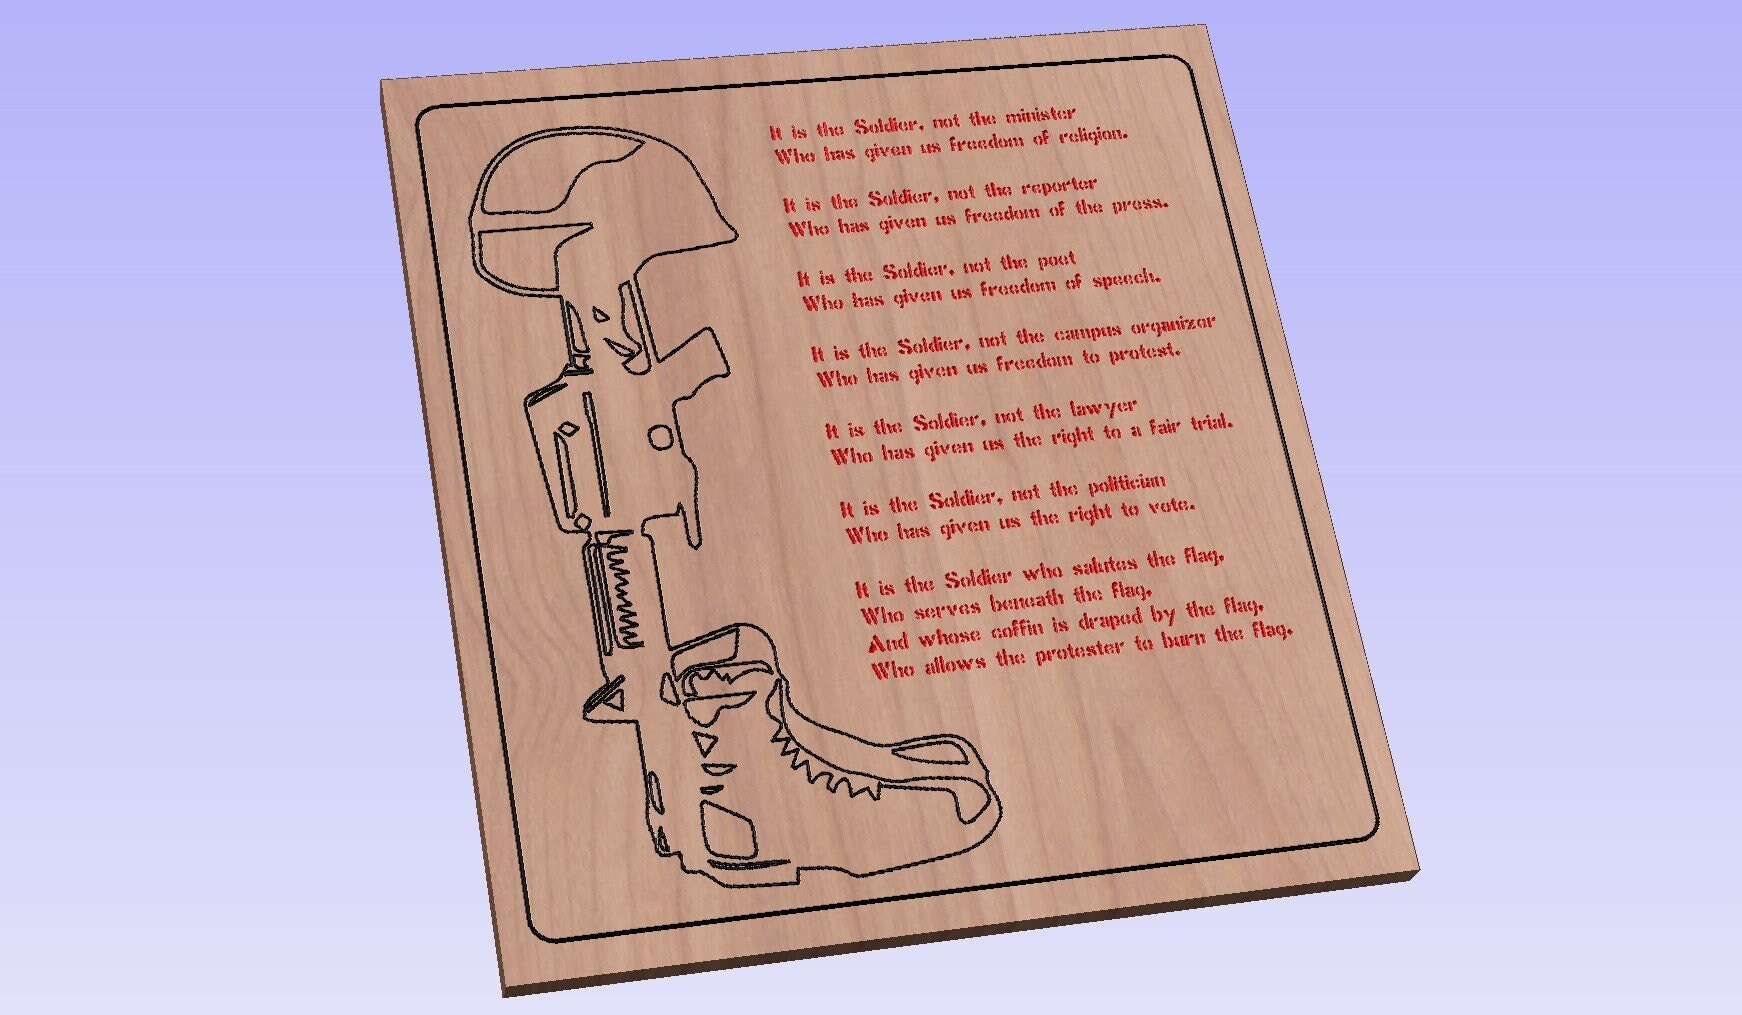 It is the Soldier, not the minister
Who has given us freedom of religion.
It is the Soldier, not the reporter
Who has given us freedom of the press.
It is the Soldier, not the poet
Who has given us freedom of speech.
It is the Soldier, not the campus organizer
Who has given us freedom to protest.
It is the Soldier, not the lawyer
Who has given us the right to a fair trial.
It is the Soldier, not the politician
Who has given us the right to vote.
It is the Soldier who salutes the flag,
Who serves beneath the flag,
And whose coffin is draped by the flag,
Who allows the protester to burn the flag.